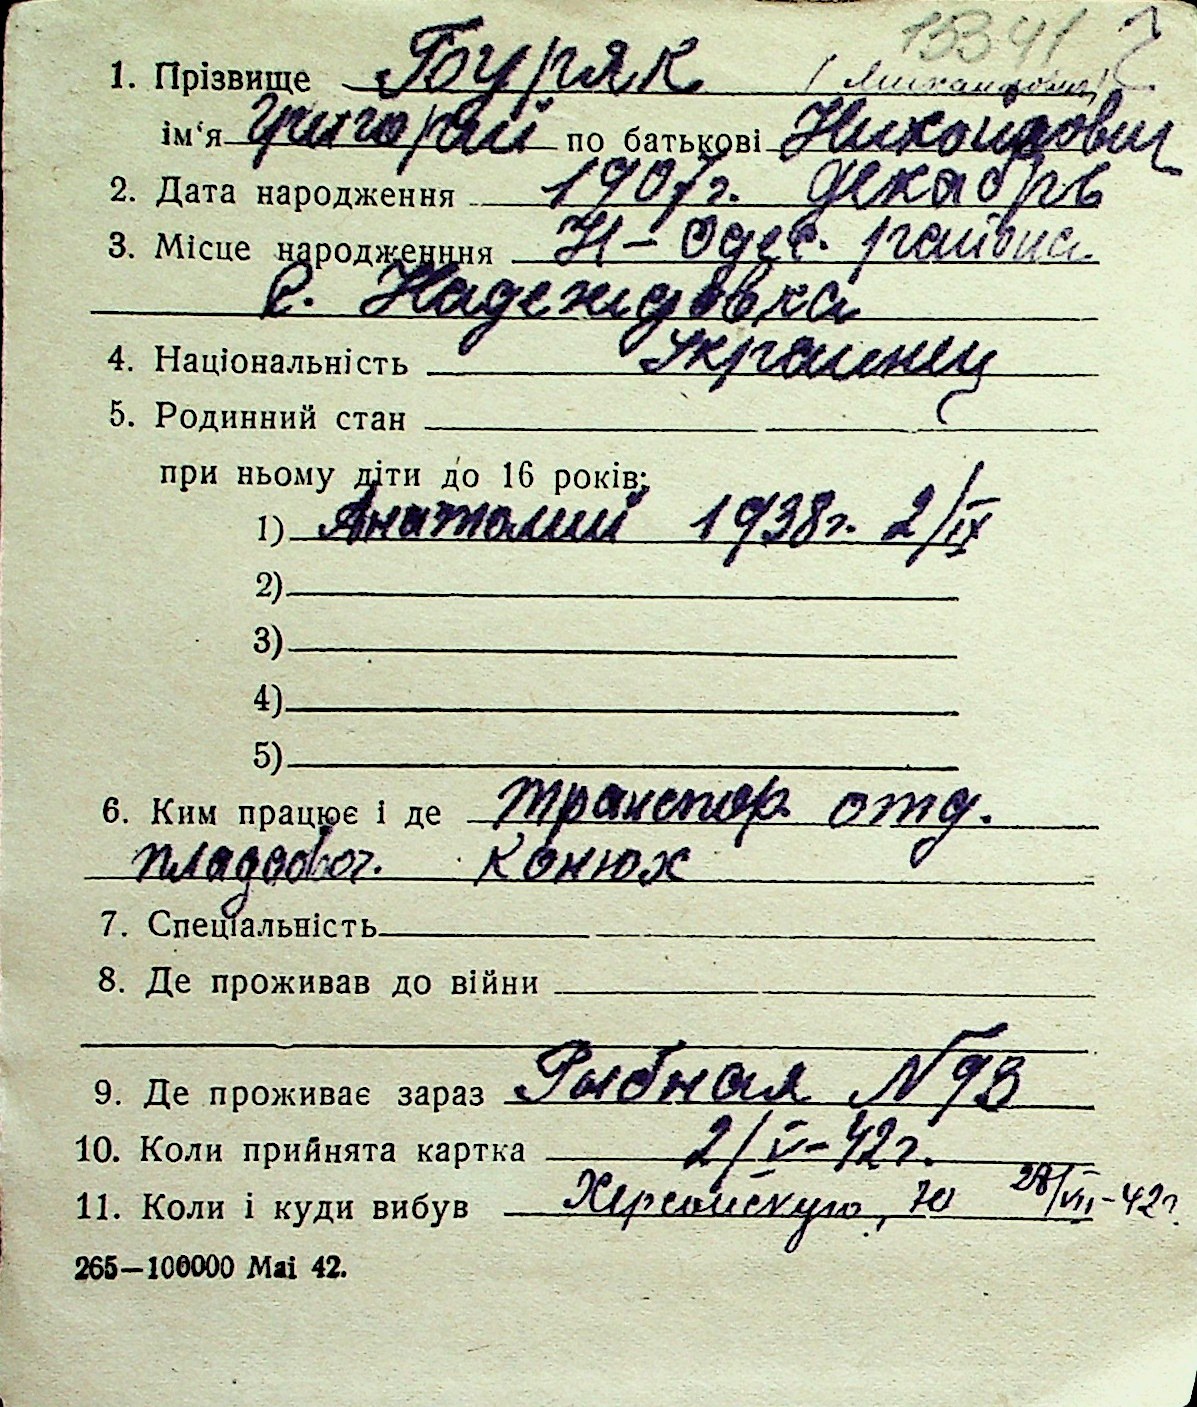 13341
1. Прізвище Буряк
ім‘я Григорий по батькові
2. Дата народження 1907г. декабрь
3. Місце народженння Н-Одес. района
с. Надеждовка
4. Національність Украинец
5. Родинний стан
при ньому діти до 16 років:
1) Анатолий 1938г. 2/IX
2)
3)
4)
5)
6. Ким працює і де транспор. отд.
конюх
7. Спеціальність
8. Де проживав до війни
9. Де проживає зараз Рыбная №93
10. Коли прийнята картка 2/V-42г.
11. Коли і куди вибув Херсонскую, 10 28/VII-42г.
265—100000 Маі 42.